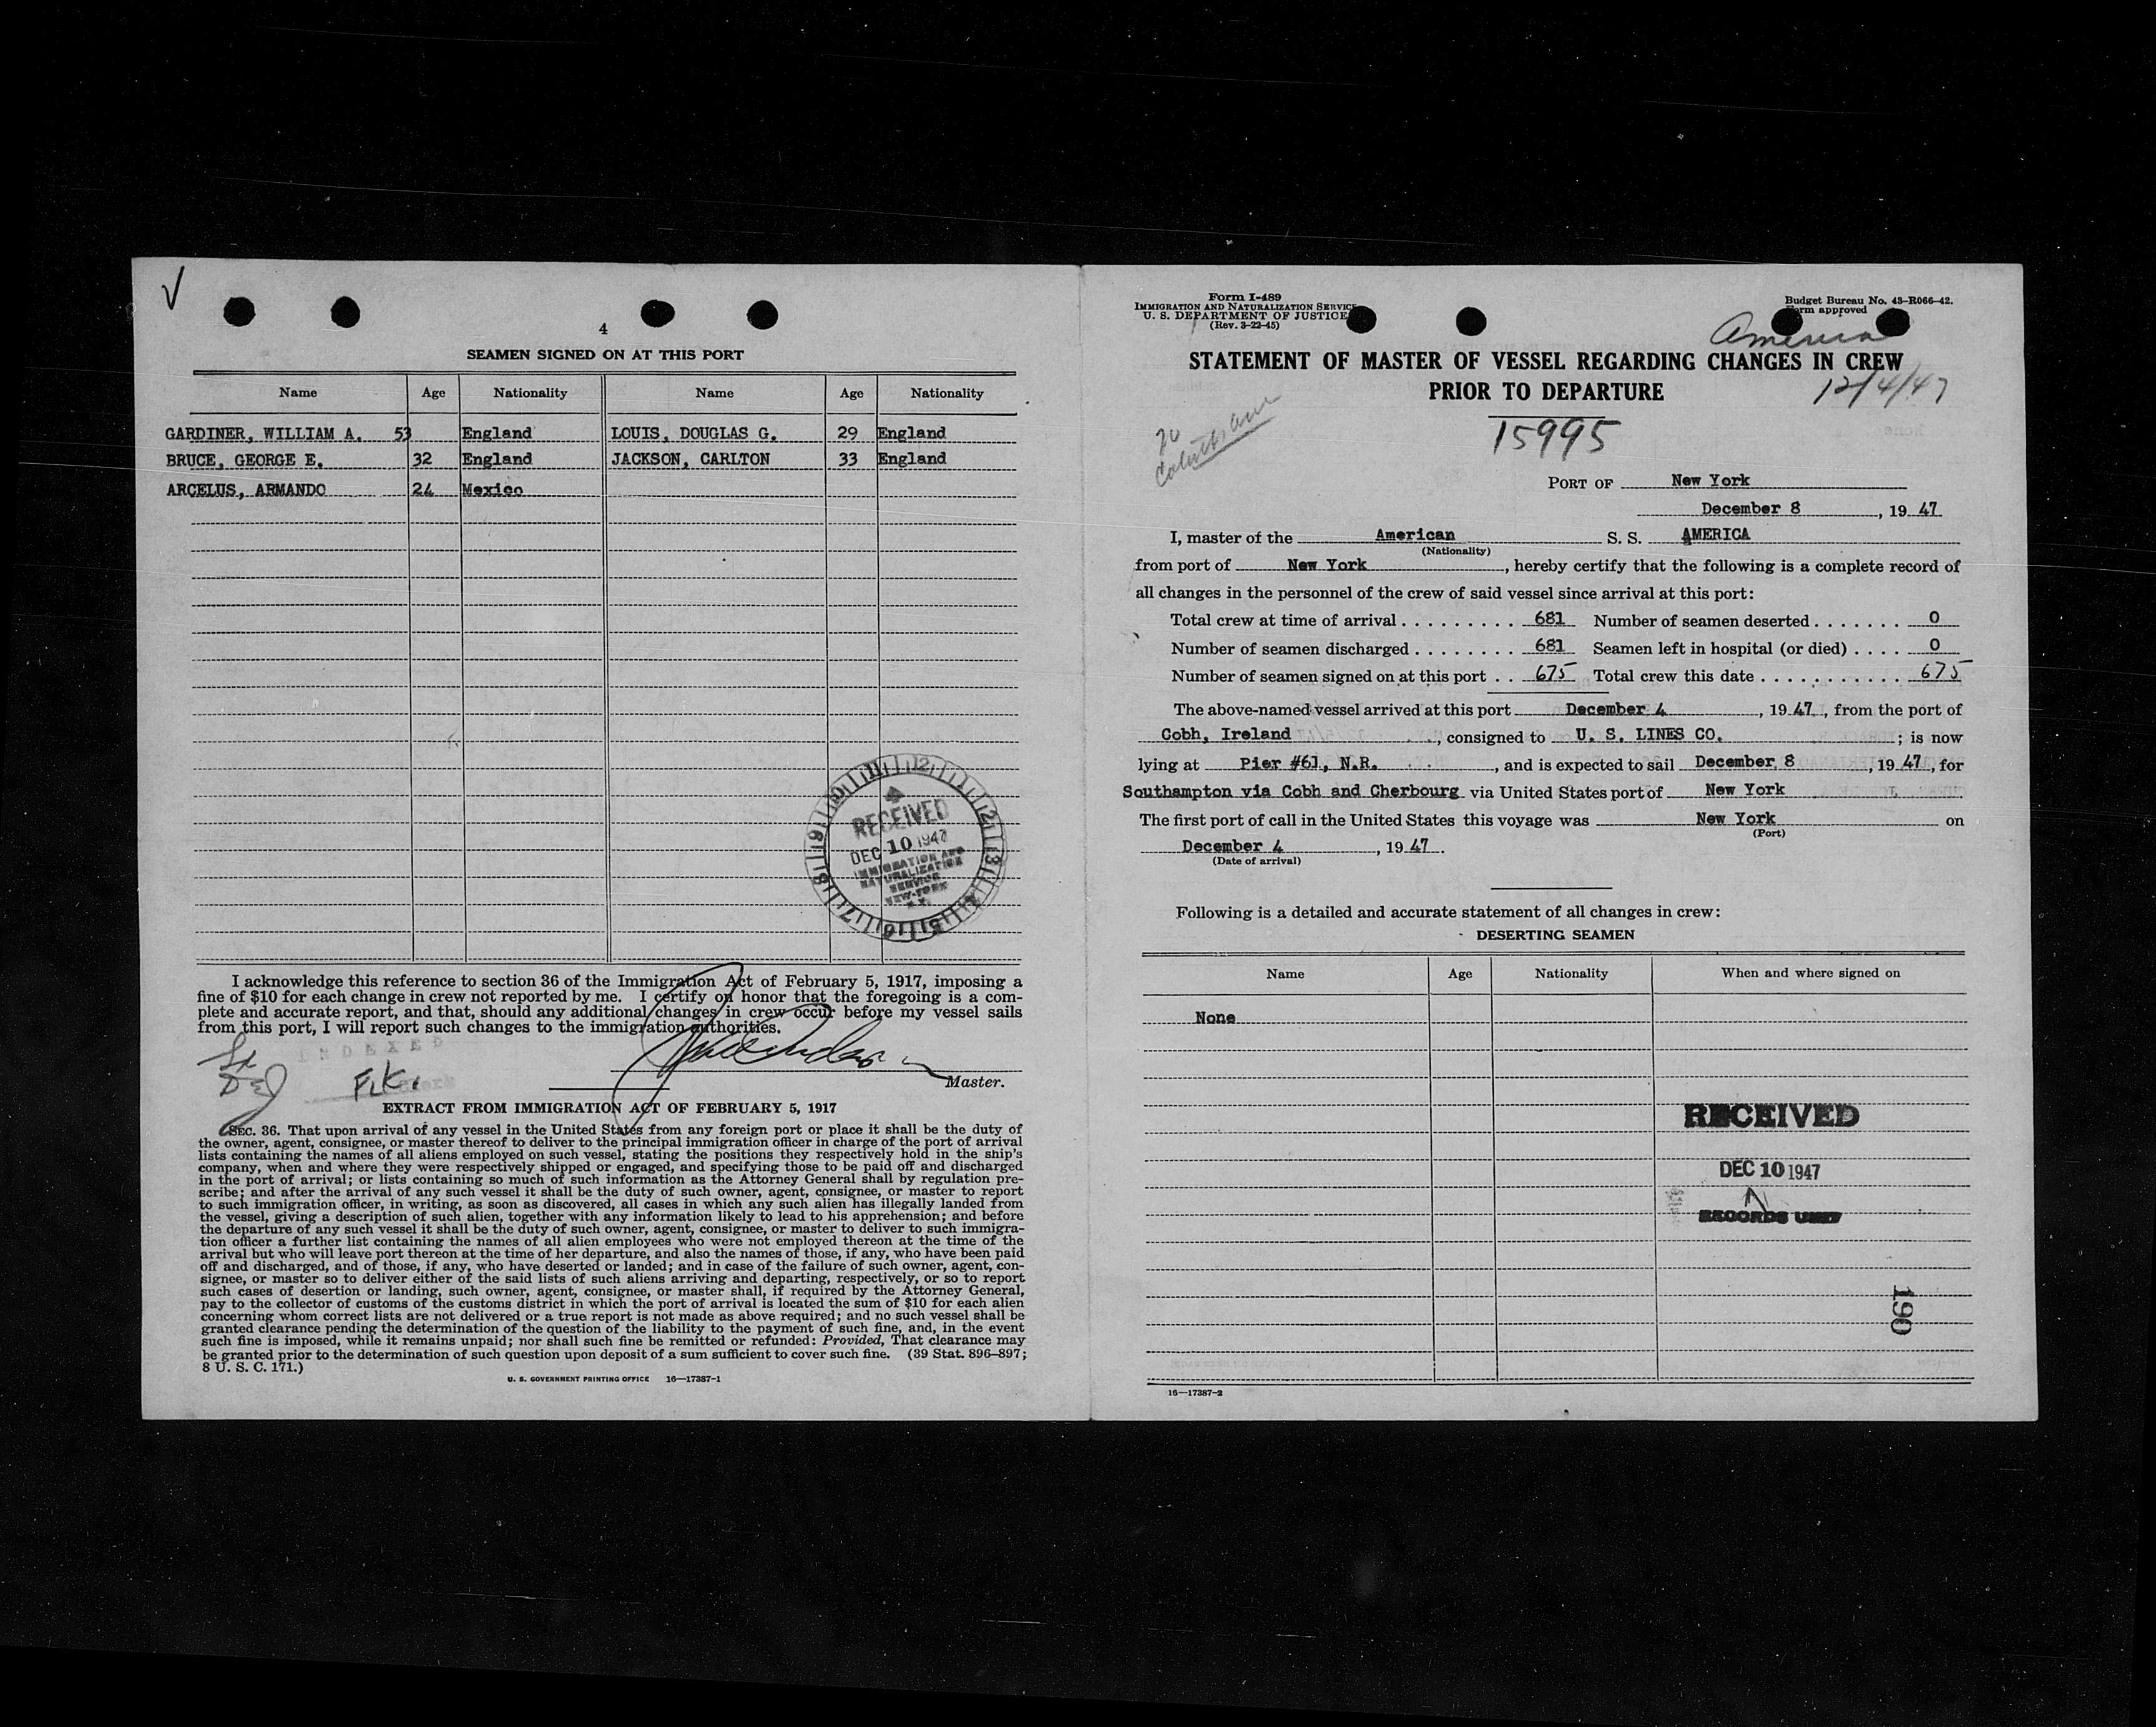 4
SEAMEN SIGNED ON AT THIS PORT
Name Age Nationality Name Age Nationality
GARDINER, WILLIAM A. 53 England LOUIS, DOUGLAS G. 29 England
BRUCE, GEORGE E. 32 England JACKSON, CARLTON 33 England
ARCELUS, ARMANDO 24 Mexico
RECEIVED
DEC 10 1947
IMMIGRATION AND
NATURALIZATION
SERVICE
NEW-YORK
N.Y.
I acknowledge this reference to section 36 of the Immigration Act of February 5, 1917, imposing a
fine of $10 for each change in crew not reported by me. I certify on honor that the foregoing is a com-
plete and accurate report, and that, should any additional changes in crew occur before my vessel sails
from this port, I will report such changes to the immigration authorities.
INDEXED
F.K.
Master.
EXTRACT FROM IMMIGRATION ACT OF FEBRUARY 5, 1917
SEC. 36. That upon arrival of any vessel in the United States from any foreign port or place it shall be the duty of
the owner, agent, consignee, or master thereof to deliver to the principal immigration officer in charge of the port of arrival
lists containing the names of all aliens employed on such vessel, stating the positions they respectively hold in the ship's
company, when and where they were respectively shipped or engaged, and specifying those to be paid off and discharged
in the port of arrival; or lists containing so much of such information as the Attorney General shall by regulation pre-
scribe; and after the arrival of any such vessel it shall be the duty of such owner, agent, consignee, or master to report
to such immigration officer, in writing, as soon as discovered, all cases in which any such alien has illegally landed from
the vessel, giving a description of such alien, together with any information likely to lead to his apprehension; and before
the departure of any such vessel it shall be the duty of such owner, agent, consignee, or master to deliver to such immigra-
tion officer a further list containing the names of all alien employees who were not employed thereon at the time of the
arrival but who will leave port thereon at the time of her departure, and also the names of those, if any, who have been paid
off and discharged, and of those, if any, who have deserted or landed; and in case of the failure of such owner, agent, con-
signee, or master so to deliver either of the said lists of such aliens arriving and departing, respectively, or so to report
such cases of desertion or landing, such owner, agent, consignee, or master shall, if required by the Attorney General,
pay to the collector of customs of the customs district in which the port of arrival is located the sum of $10 for each alien
concerning whom correct lists are not delivered or a true report is not made as above required; and no such vessel shall be
granted clearance pending the determination of the question of the liability to the payment of such fine, and, in the event
such fine is imposed, while it remains unpaid; nor shall such fine be remitted or refunded: Provided, That clearance may
be granted prior to the determination of such question upon deposit of a sum sufficient to cover such fine. (39 Stat. 896–897;
8 U. S. C. 171.)
U. S. GOVERNMENT PRINTING OFFICE 16—17387-1
Form I-489
IMMIGRATION AND NATURALIZATION SERVICE
U. S. DEPARTMENT OF JUSTICE
(Rev. 3-22-45)
Budget Bureau No. 43-R066-42.
Form approved
America
STATEMENT OF MASTER OF VESSEL REGARDING CHANGES IN CREW
PRIOR TO DEPARTURE
12/4/47
15995
PORT OF New York
December 8, 19 47
I, master of the American S. S. AMERICA
(Nationality)
from port of New York, hereby certify that the following is a complete record of
all changes in the personnel of the crew of said vessel since arrival at this port:
Total crew at time of arrival 681 Number of seamen deserted 0
Number of seamen discharged 681 Seamen left in hospital (or died) 0
Number of seamen signed on at this port 675 Total crew this date 675
The above-named vessel arrived at this port December 4, 19 47, from the port of
Cobh, Ireland, consigned to U. S. LINES CO.; is now
lying at Pier #61, N.R., and is expected to sail December 8, 19 47, for
Southampton via Cobh and Cherbourg via United States port of New York
The first port of call in the United States this voyage was New York on
(Port)
December 4, 19 47.
(Date of arrival)
Following is a detailed and accurate statement of all changes in crew:
DESERTING SEAMEN
Name Age Nationality When and where signed on
None
RECEIVED
DEC 10 1947
RECORDS UNIT
190
16—17387-2